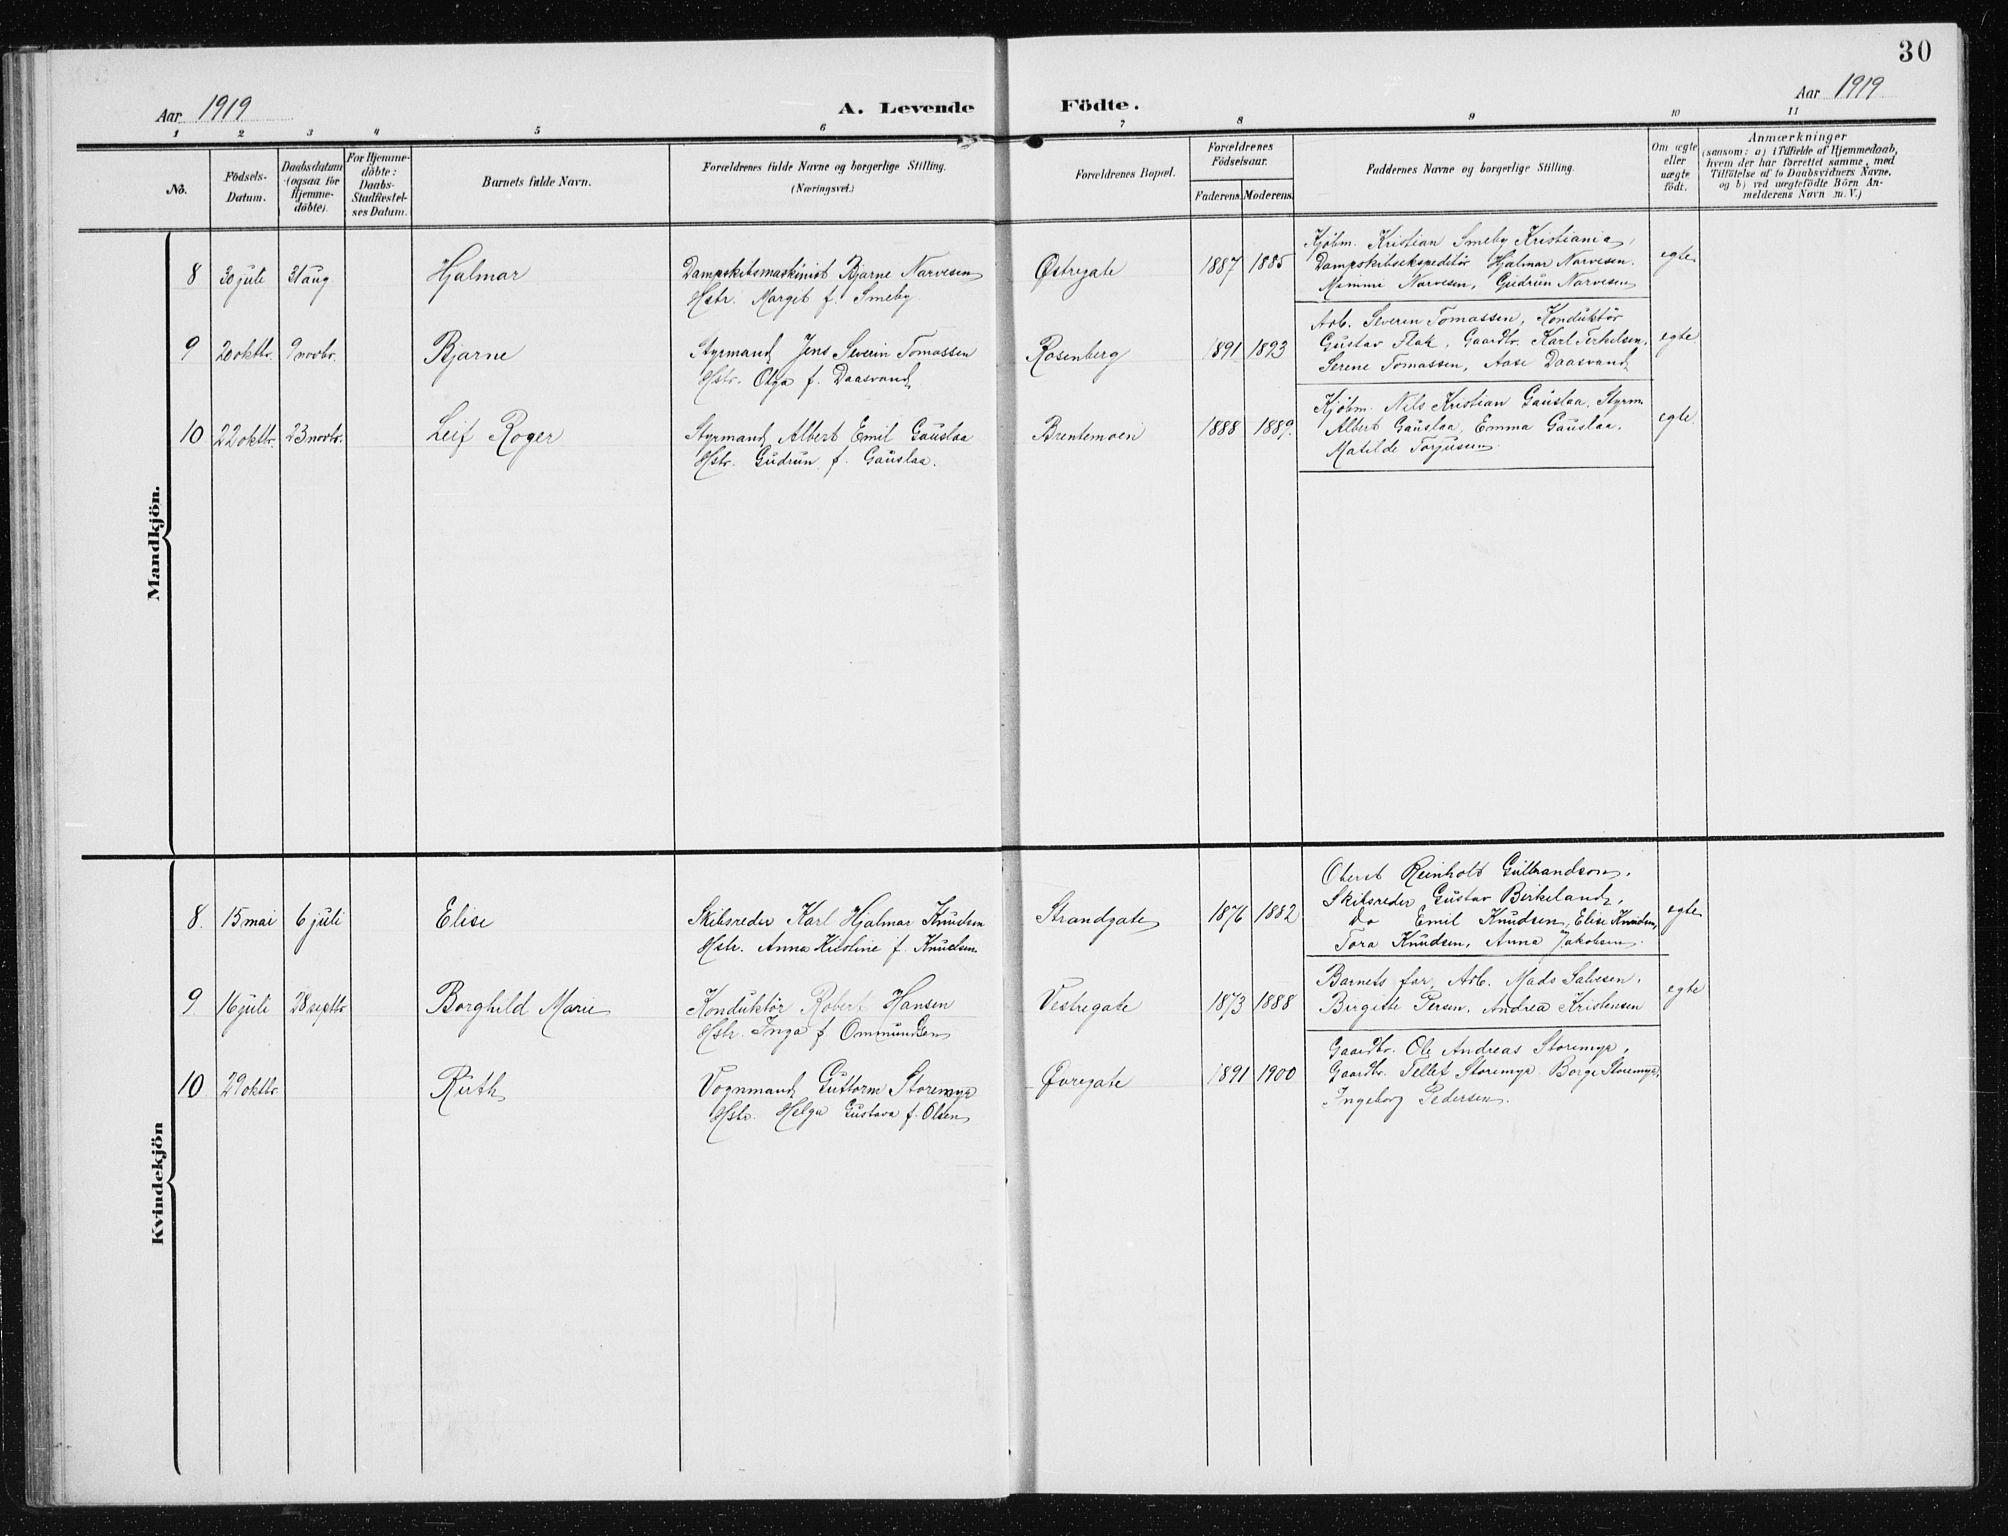 30
Aar 1919 A. Levende Födte. Aar 1919
1 2 3 4 5 6 7 8 9 10 11
No.
Födsels-
Datum.
Daabsdatum
(ogsaa for
Hjemme-
döbte).
For Hjemme-
döbte:
Daabs-
Stadfæstel-
ses Datum.
Barnets fulde Navn.
Forældrenes fulde Navne og borgerlige Stilling.
(Næringsvei.)
Forældrenes Bopæl.
Forældrenes
Födselsaar.
Faderens. Moderens.
Faddernes Navne og borgerlige Stilling.
Om ægte
eller
uægte
födt.
Anmærkninger
(saasom: a) i Tilfælde af Hjemmedaab,
hvem der har forrettet samme, med
Tilföielse af to Daabsvidners Navne,
og b) ved uægtefödte Börn An-
melderens Navn m. V.)
Mandkjön.
8 30 juli 31 aug Hjalmar
Dampskibsmaskinist Bjarne Narvesen
Hstr. Margit f. Smeby.
Østregate 1887 1885
Kjøbm. Kristian Smeby Kristiania,
Dampskibsekspeditør Hjalmar Narvesen.
Mimmi Narvesen, Gudrun Narvesen
egte
9 20 oktbr. 9 novbr. Bjarne
Styrmand Jens Severin Tomassen
Hstr. Olga f. Daasvand
Rosenberg 1891 1893
Arb. Severin Tomassen, Konduktør
Gustav Flak, Gaardbr. Karl Terkelsen,
Serene Tomassen, Aase Daasvand
egte
10 22 oktbr. 23 novbr. Leif Roger
Styrmand Albert Emil Gauslaa
Hstr. Gudrun f. Gauslaa.
Brentemoen 1888 1889.
Kjøbm. Nils Kristian Gauslaa, Styrm
Albert Gauslaa, Emma Gauslaa.
Matilde Torjusen.
egte
Kvindekjön
8. 15 mai 6 juli Elise
Skibsreder Karl Hjalmar Knudsen
Hstr. Anna Kiroline f. Knudsen
Strandgate 1876 1882
Oberst Reinholt Gulbrandson,
Skibsreder Gustav Birkeland,
do Emil Knudsen, Elise Knudsen,
Tora Knudsen, Anna Jakobsen.
egte
9 16 juli 28 septbr Borghild Marie
Konduktør Robert Hansen
Hstr. Inga f. Ommundsen
Vestregate 1873 1888
Barnets far, Arb. Mads Salvesen,
Birgitte Persen, Andrea Kristensen
egte
10 29 oktbr. Ruth
Vognmand Guttorm Storemyr
Hstr. Helga Gustava f. Olsen
Øvregate 1891 1900
Gaardbr. Ole Andreas Storemyr,
Gaardbr. Tellef Storemyr. Borge Storemyr,
Ingeborg Pedersen.